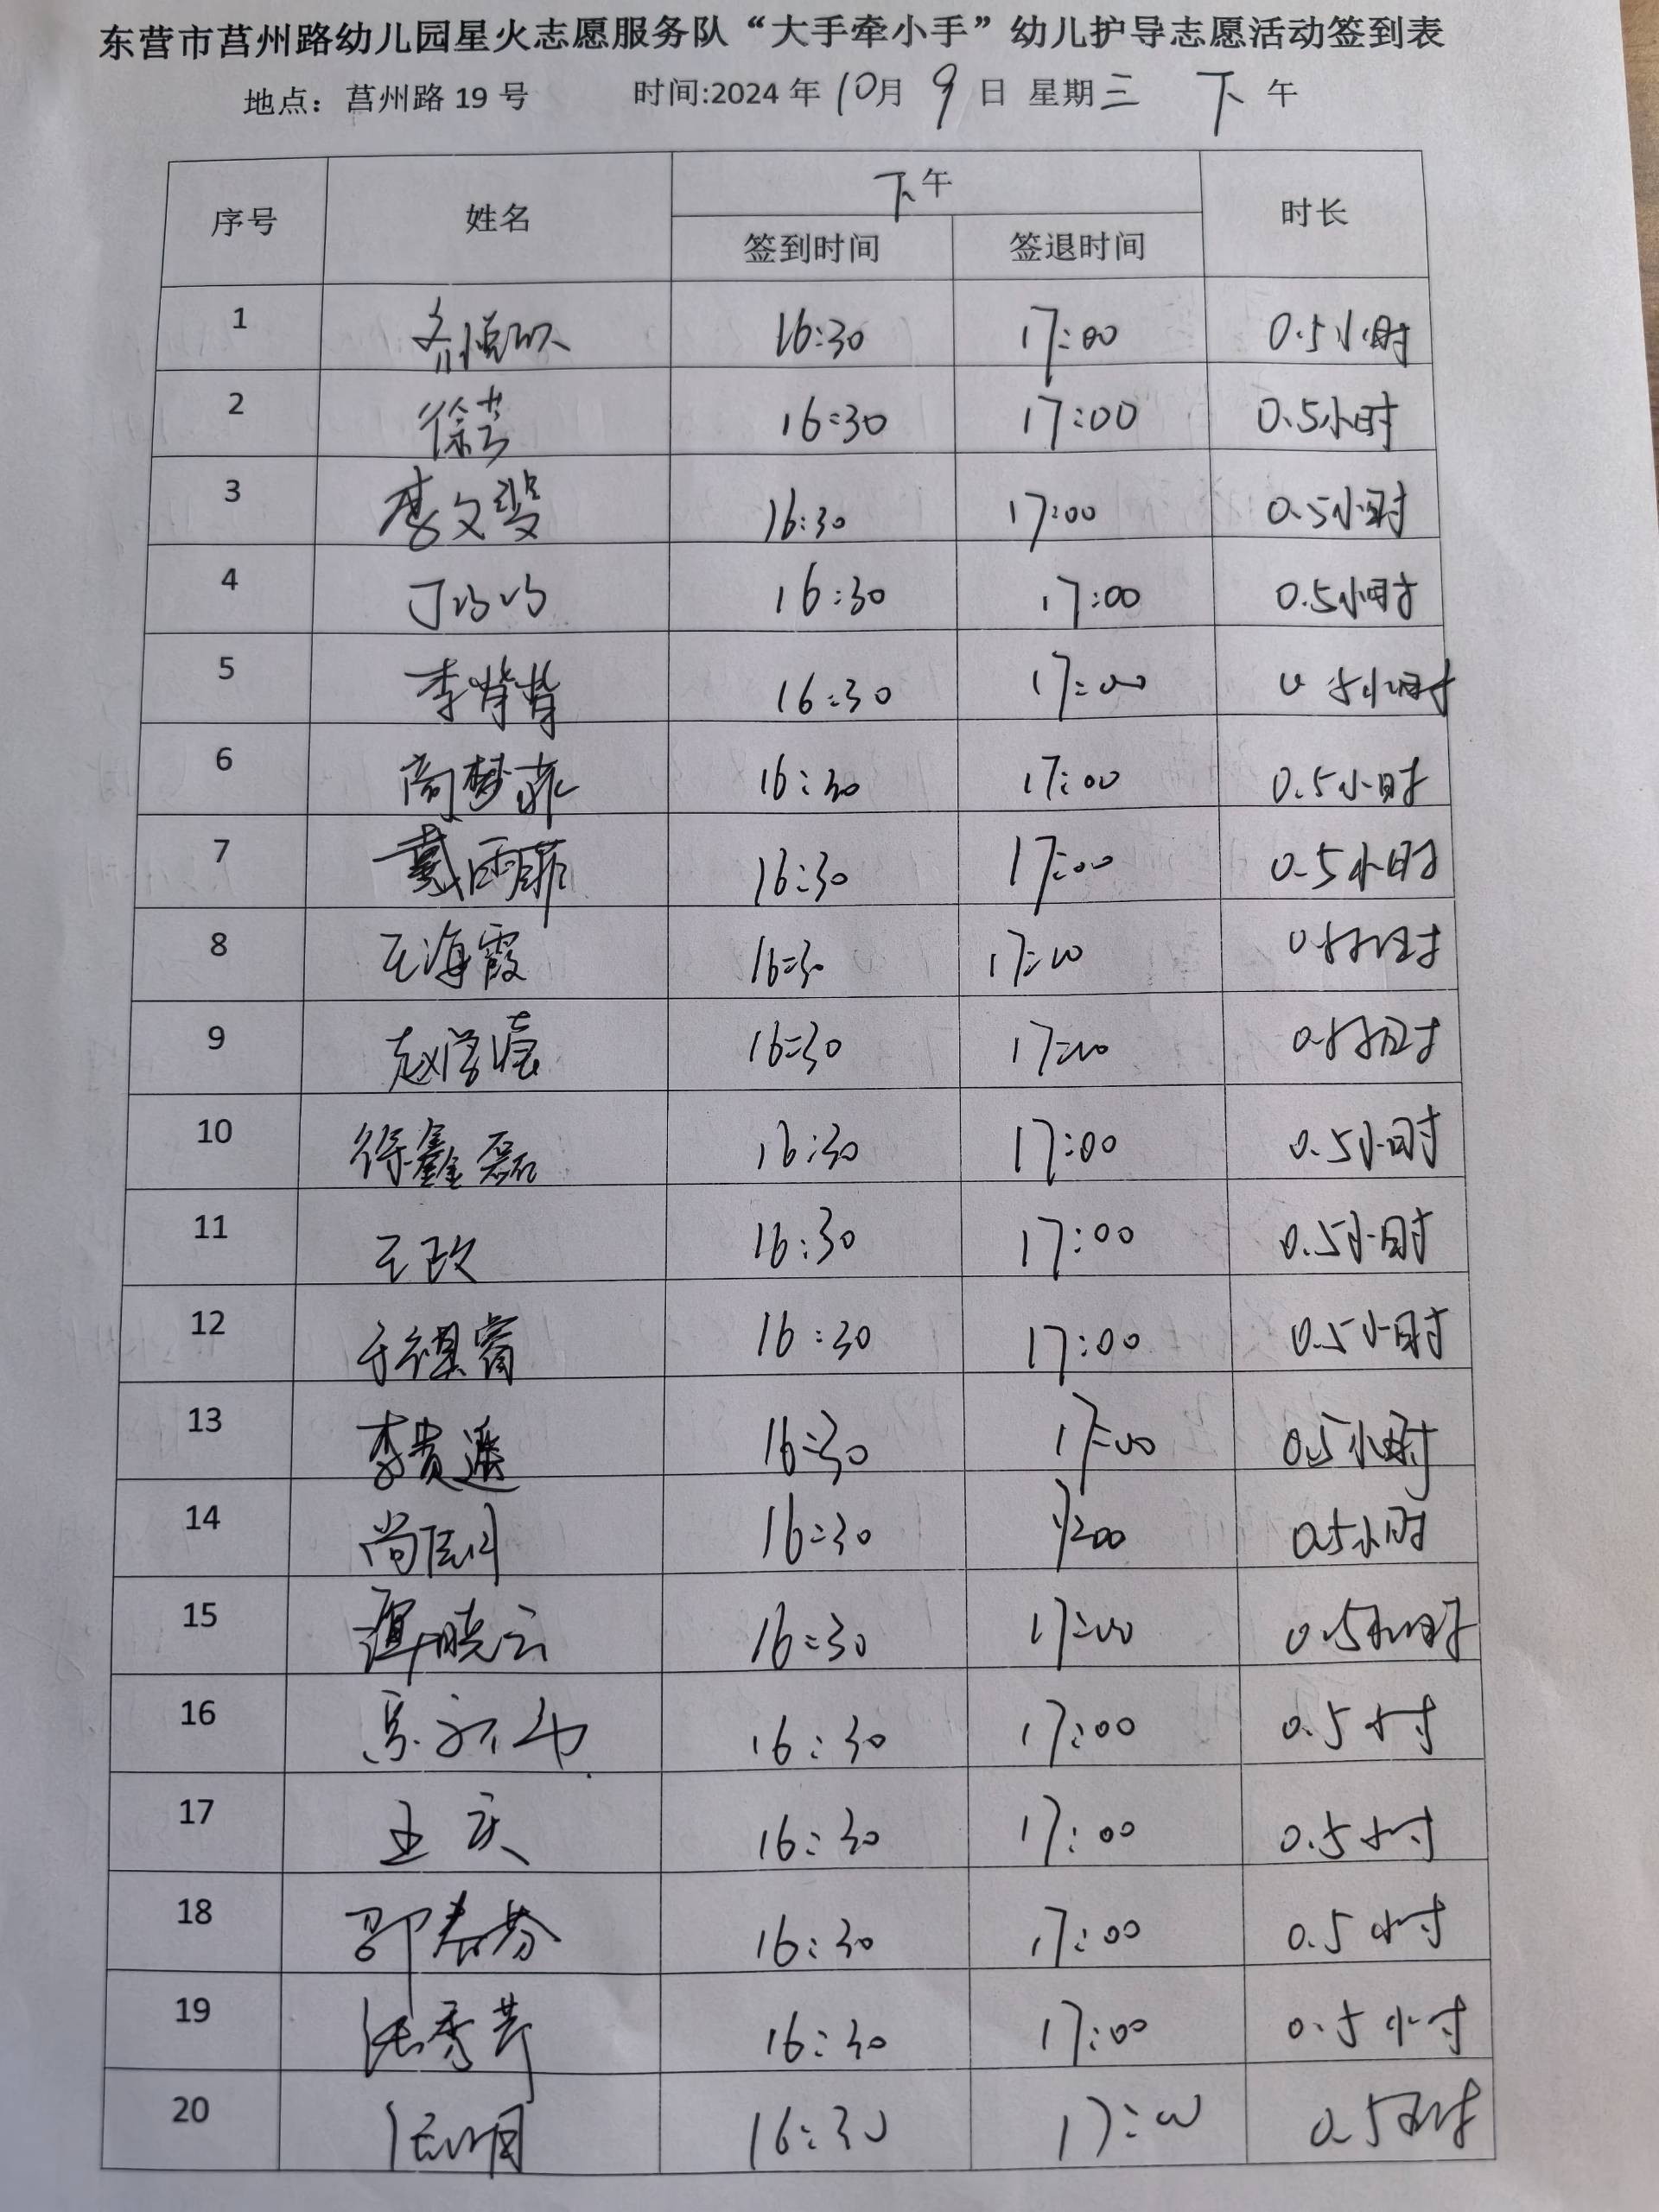 东营市莒州路幼儿园星火志愿服务队“大手牵小手”幼儿护导志愿活动签到表
地点：莒州路 19 号 时间:2024 年 10月 9 日 星期三 下 午
序号 姓名 下午 时长
签到时间 签退时间
1 16:30 17:00 0.5小时
2 徐芸 16:30 17:00 0.5小时
3 李文斐 16:30 17:00 0.5小时
4 丁巧巧 16:30 17:00 0.5小时
5 李肖肖 16:30 17:00 0.5小时
6 尚梦菲 16:30 17:00 0.5小时
7 戴雨菲 16:30 17:00 0.5小时
8 王海霞 16:30 17:00 0.5小时
9 赵学 16:30 17:00 0.5小时
10 徐鑫磊 16:30 17:00 0.5小时
11 王政 16:30 17:00 0.5小时
12 于祺睿 16:30 17:00 0.5小时
13 李贵遥 16:30 17:00 0.5小时
14 尚 16:30 17:00 0.5小时
15 谭晓云 16:30 17:00 0.5小时
16 16:30 17:00 0.5小时
17 王庆 16:30 17:00 0.5小时
18 邵春芬 16:30 17:00 0.5小时
19 张秀芹 16:30 17:00 0.5小时
20 16:30 17:00 0.5小时